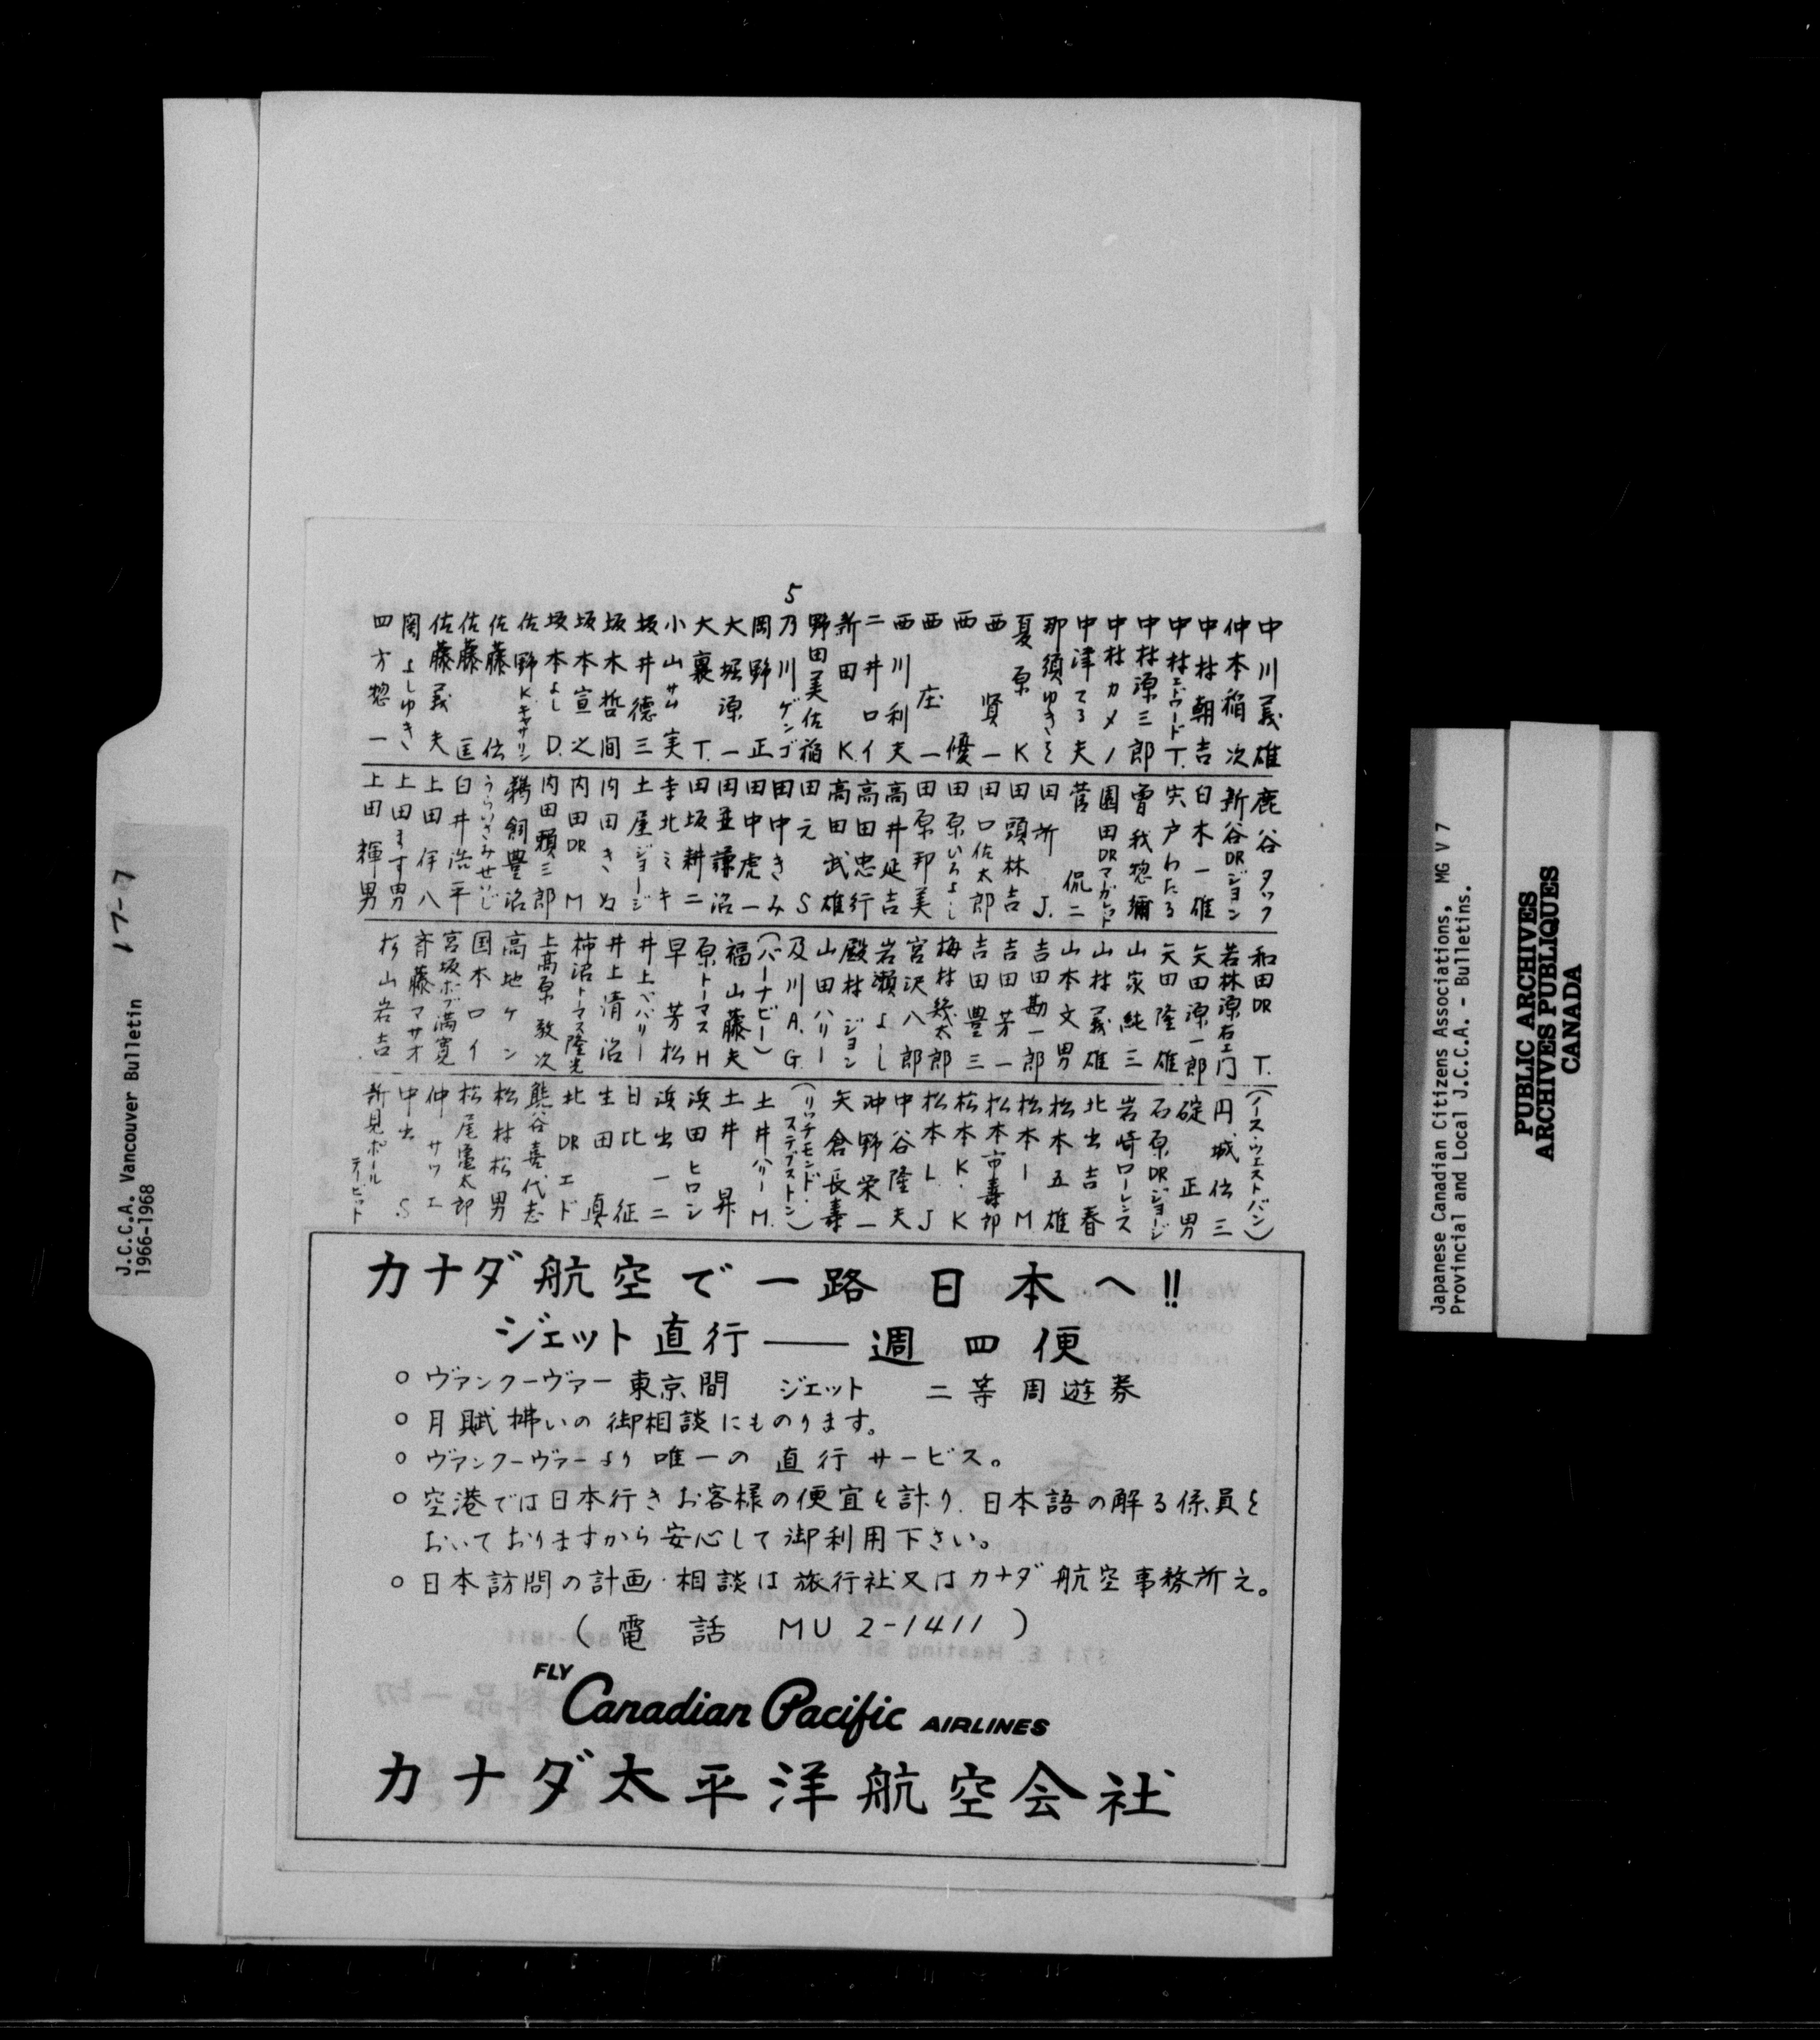 5
中川義雄
仲本稲次
中村朝吉
中村エドワードT.
中村源三郎
中村カメノ
中津てる夫
那須ゆきミ
夏原K
西賢一
西優
西庄一
西川利夫
二井口イ
新田K.
野田美佐稲
乃川ゲンゴ
岡野正
大堀源一
大裏T.
小山サム実
坂井徳三
坂木哲間
坂本宣之
坂本よしD.
佐野K.キャサリン
佐藤伝
佐藤匡
佐藤義夫
関よしゆき
四方惣一
鹿谷タック
新谷DRジョン
白木一雄
宍戸わたる
曽我惣彌
園田DRマガレット
菅侃二
田所J.
田頭林吉
田口佐太郎
田原いろよし
田原邦美
高井延吉
高田忠行
高田武雄
田元S
田中きみ
田中虎一
田並謙治
田坂耕二
幸北ミキ
土屋ジョージ
内田きぬ
内田DR M
内田頼三郎
鵜飼豊治
うらいさみせいじ
臼井浩平
上田伊八
上田ます男
上田輝男
和田DR T.
若林源右エ門
矢田源一郎
矢田隆雄
山家純三
山村義雄
山本文男
吉田勘一郎
吉田芳一
吉田豊三
梅村幾太郎
宮沢八郎
岩瀬よし
殿村ジョン
山田ハリー
及川A.G.
(バーナビー)
福山藤夫
原トーマスH
早芳松
井上ベバリー
井上清治
柿沼トーマス隆光
上高原敎次
高地ケン
国本ロイ
宮坂ボブ満寛
斉藤マサオ
杉山岩吉
(ノース・ウエストバン)
円城伝三
碇正男
石原DRジョージ
岩崎ローレンス
北出吉春
松木五雄
松本IM
松本市壽郎
松本K.K
松本L.J
中谷隆夫
沖野栄一
矢倉長壽
(リッチモンド・ステブストン)
土井ハリーM.
土井昇
浜田ヒロシ
浜出一二
日比征
生田真
北DRエド
熊谷喜代志
松村松男
松尾亀太郎
仲サワエ
中出S
新見ポールデービット
カナダ航空で一路 日本へ!!
ジェット直行——週四便
○ ヴァンクーヴァー東京間 ジェット 二等周遊券
○ 月賦拂いの御相談にものります。
○ ヴァンクーヴァーより唯一の直行サービス。
○ 空港では日本行きお客様の便宜を計り、日本語の解る係員を
おいておりますから安心して御利用下さい。
○ 日本訪問の計画・相談は旅行社又はカナダ航空事務所え。
(電話 MU 2-1411)
FLY
Canadian Pacific AIRLINES
カナダ太平洋航空会社
J.C.C.A. Vancouver Bulletin 17-7
1966-1968
Japanese Canadian Citizens Associations, MG V 7
Provincial and Local J.C.C.A. - Bulletins.
PUBLIC ARCHIVES
ARCHIVES PUBLIQUES
CANADA